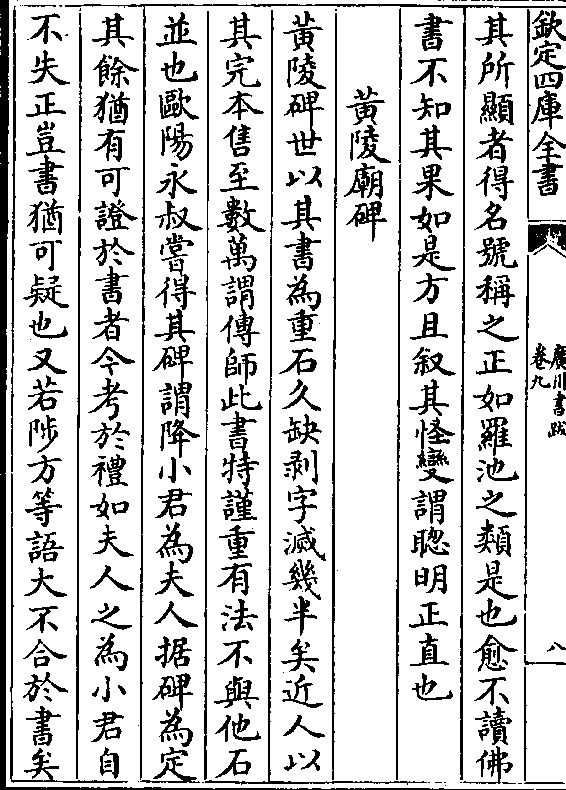 欽定四庫全書
廣川書跋
卷九
八
其所顯者得名號稱之正如羅池之類是也愈不讀佛
書不知其果如是方且叙其怪變謂聰明正直也
黃陵廟碑
黃陵碑世以其書為重石久缺剥字滅幾半矣近人以
其完本售至數萬謂傳師此書特謹重有法不與他石
並也歐陽永叔嘗得其碑謂降小君為夫人据碑為定
其餘猶有可證於書者今考於禮如夫人之為小君自
不失正豈書猶可疑也又若陟方等語大不合於書矣